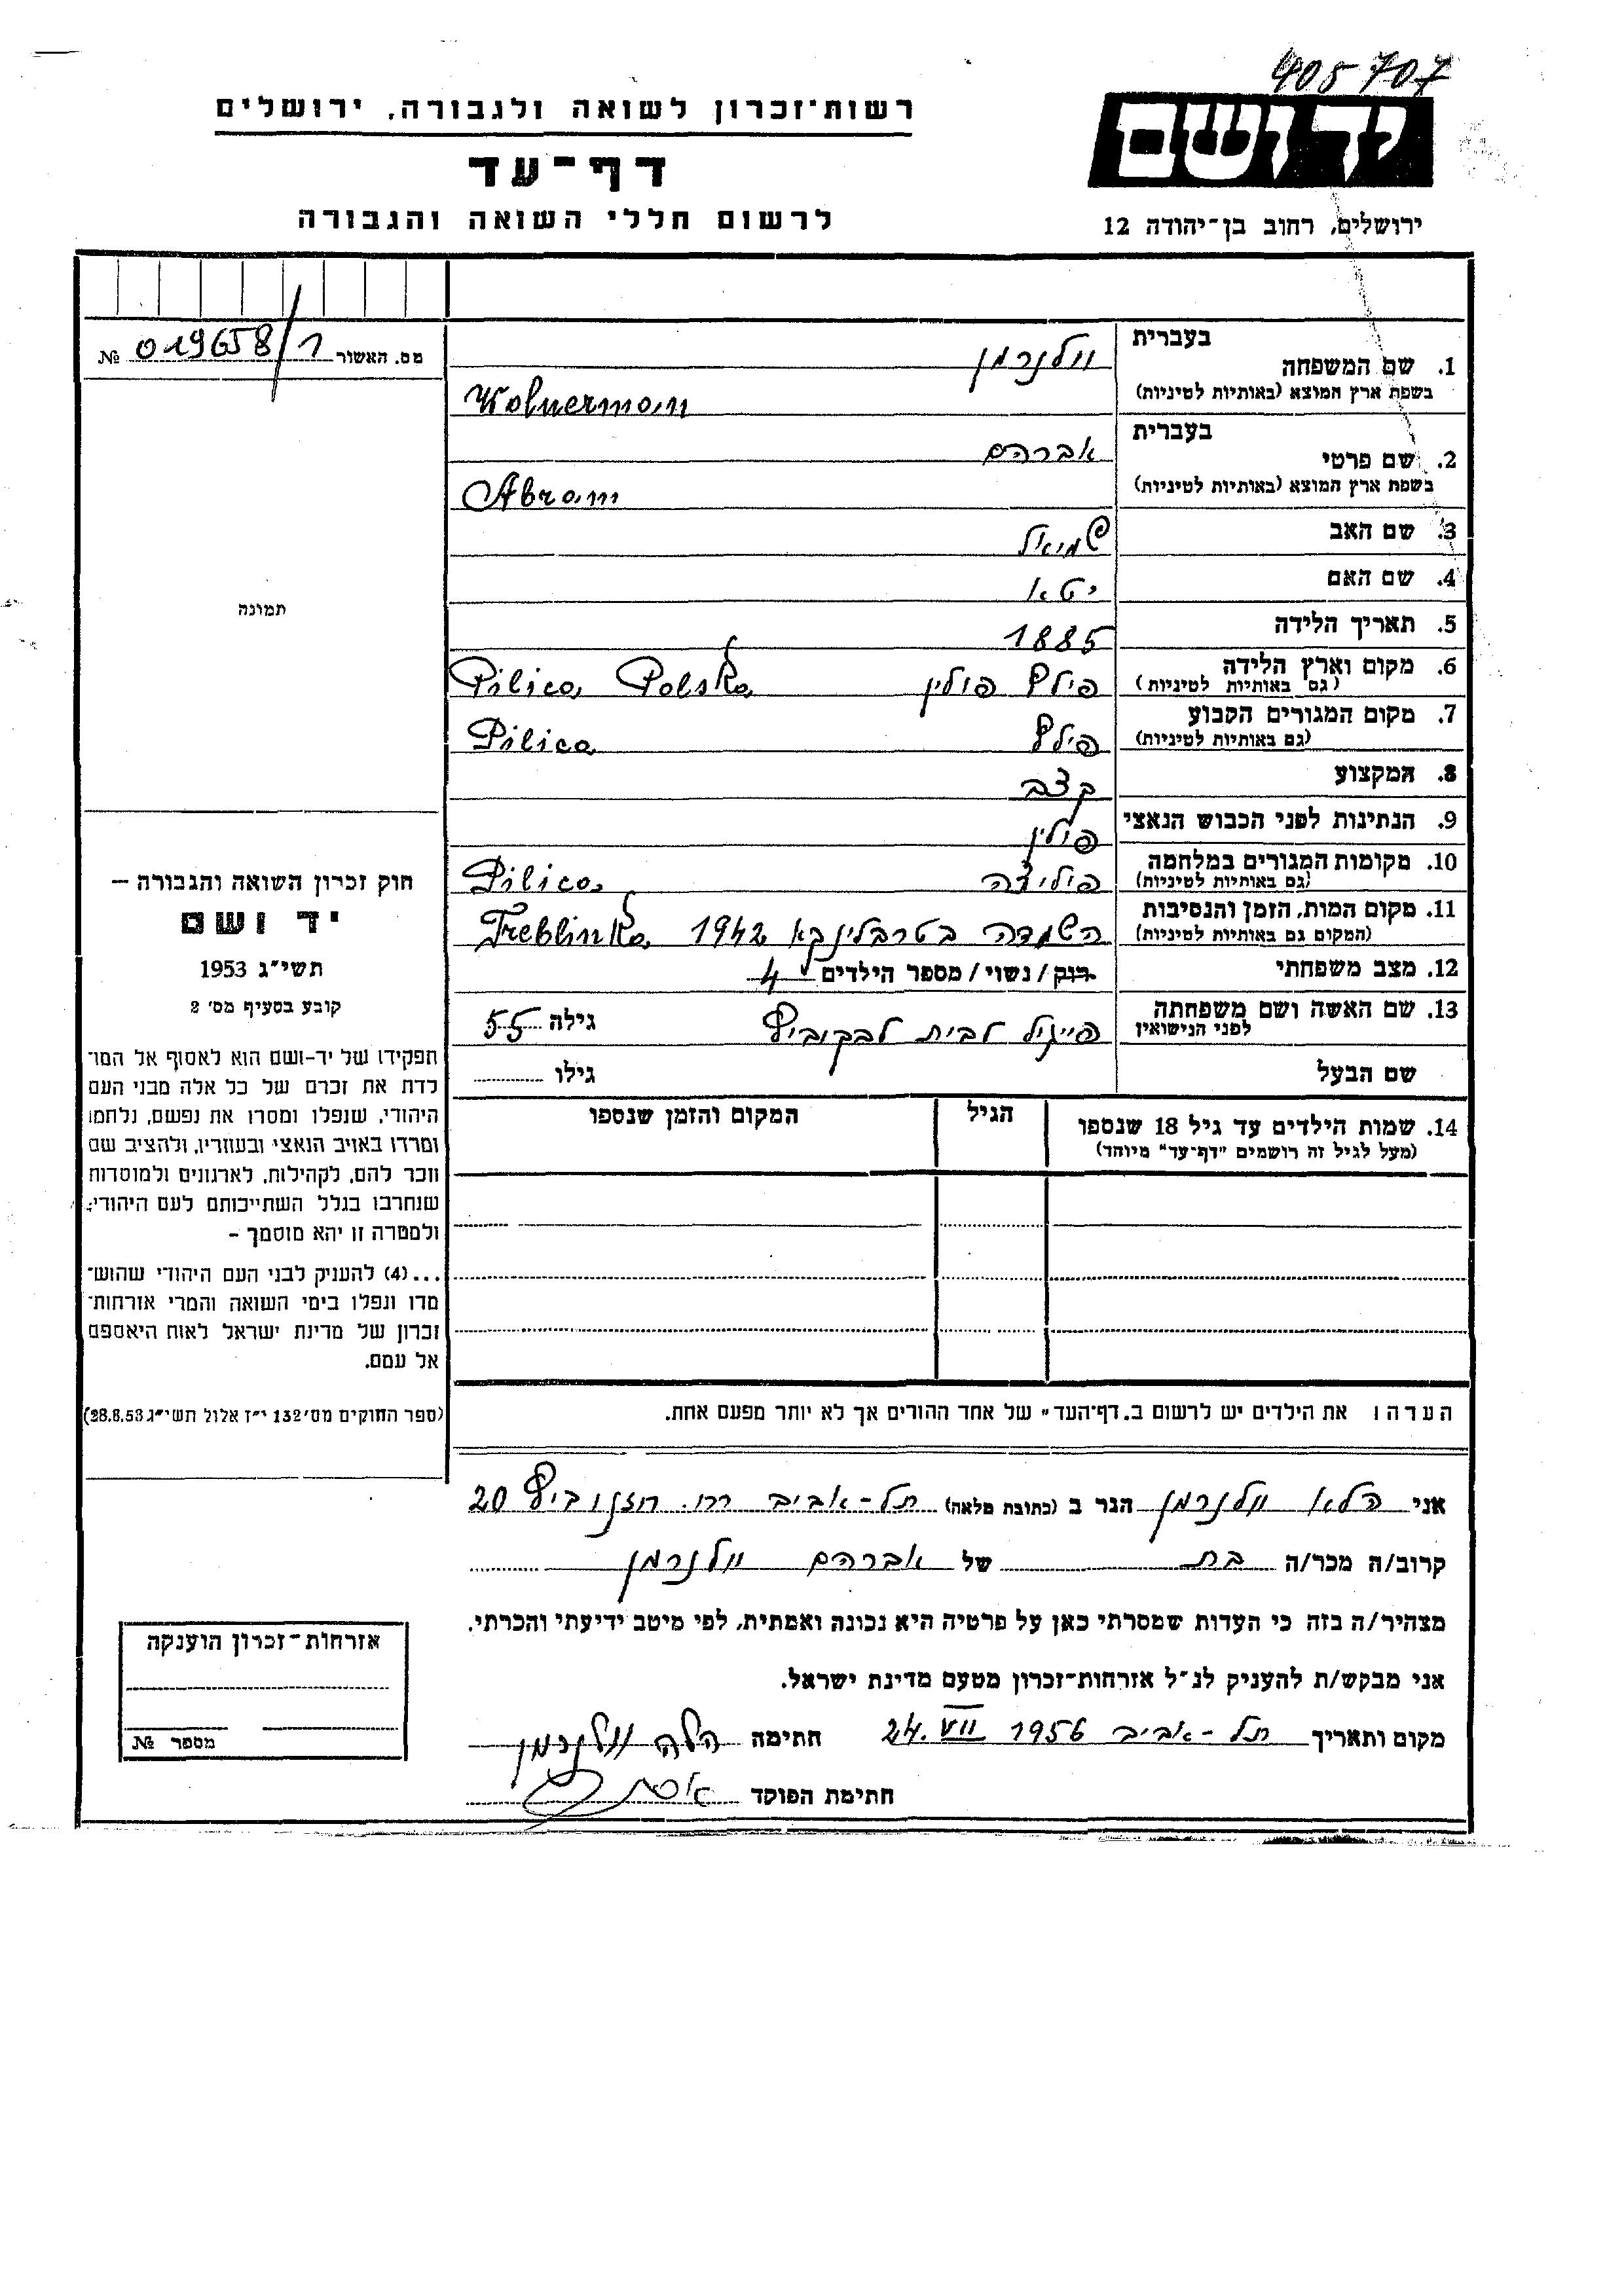 405707
רשות־זכרון לשואה ולגבורה, ירושלים
יד ושם
דף־עד
לרשום חללי השואה והגבורה
ירושלים, רחוב בן־יהודה 12
מס. האשור 019658/1 №
בעברית
1. שם המשפחה וולנרמן
בשפת ארץ המוצא (באותיות לטיניות) Wolnerman
בעברית
2. שם פרטי אברהם
בשפת ארץ המוצא (באותיות לטיניות) Abram
3. שם האב שמואל
4. שם האם יטא
5. תאריך הלידה 1885
6. מקום וארץ הלידה פילץ פולין Pilica Polska
(גם באותיות לטיניות)
7. מקום המגורים הקבוע פילץ Pilica
(גם באותיות לטיניות)
8. המקצוע קצב
9. הנתינות לפני הכבוש הנאצי פולין
10. מקומות המגורים במלחמה פיליצה Pilica
(גם באותיות לטיניות)
11. מקום המות, הזמן והנסיבות השמדה בטרבלינקא 1942 Treblinka
(המקום גם באותיות לטיניות)
12. מצב משפחתי רוק / נשוי / מספר הילדים 4
13. שם האשה ושם משפחתה פייגיל לבית לבקוביץ גילה 55
לפני הנישואין
שם הבעל גילו
14. שמות הילדים עד גיל 18 שנספו הגיל המקום והזמן שנספו
(מעל לגיל זה רושמים "דף־עד" מיוחד)
הערה: את הילדים יש לרשום ב"דף־העד" של אחד ההורים אך לא יותר מפעם אחת.
אני הלא וולנרמן הגר ב (כתובת מלאה) תל-אביב רח. חזנוביץ 20
קרוב/ה מכר/ה בת של אברהם וולנרמן
מצהיר/ה בזה כי העדות שמסרתי כאן על פרטיה היא נכונה ואמתית, לפי מיטב ידיעתי והכרתי.
אני מבקש/ת להעניק לנ"ל אזרחות־זכרון מטעם מדינת ישראל.
מקום ותאריך תל-אביב 24. VII 1956 חתימה הלה וולנרמן
חתימת הפוקד
תמונה
חוק זכרון השואה והגבורה –
יד ושם
תשי"ג 1953
קובע בסעיף מס' 2
תפקידו של יד-ושם הוא לאסוף אל המו־
לדת את זכרם של כל אלה מבני העם
היהודי, שנפלו ומסרו את נפשם, נלחמו
ומרדו באויב הנאצי ובעוזריו, ולהציב שם
וזכר להם, לקהילות, לארגונים ולמוסדות
שנחרבו בגלל השתייכותם לעם היהודי;
ולמטרה זו יהא מוסמך –
...(4) להעניק לבני העם היהודי שהוש־
מדו ונפלו בימי השואה והמרי אזרחות־
זכרון של מדינת ישראל לאות היאספם
אל עמם.
(ספר החוקים מס' 132 י"ז אלול תשי"ג 28.8.53)
אזרחות־זכרון הוענקה
מספר №